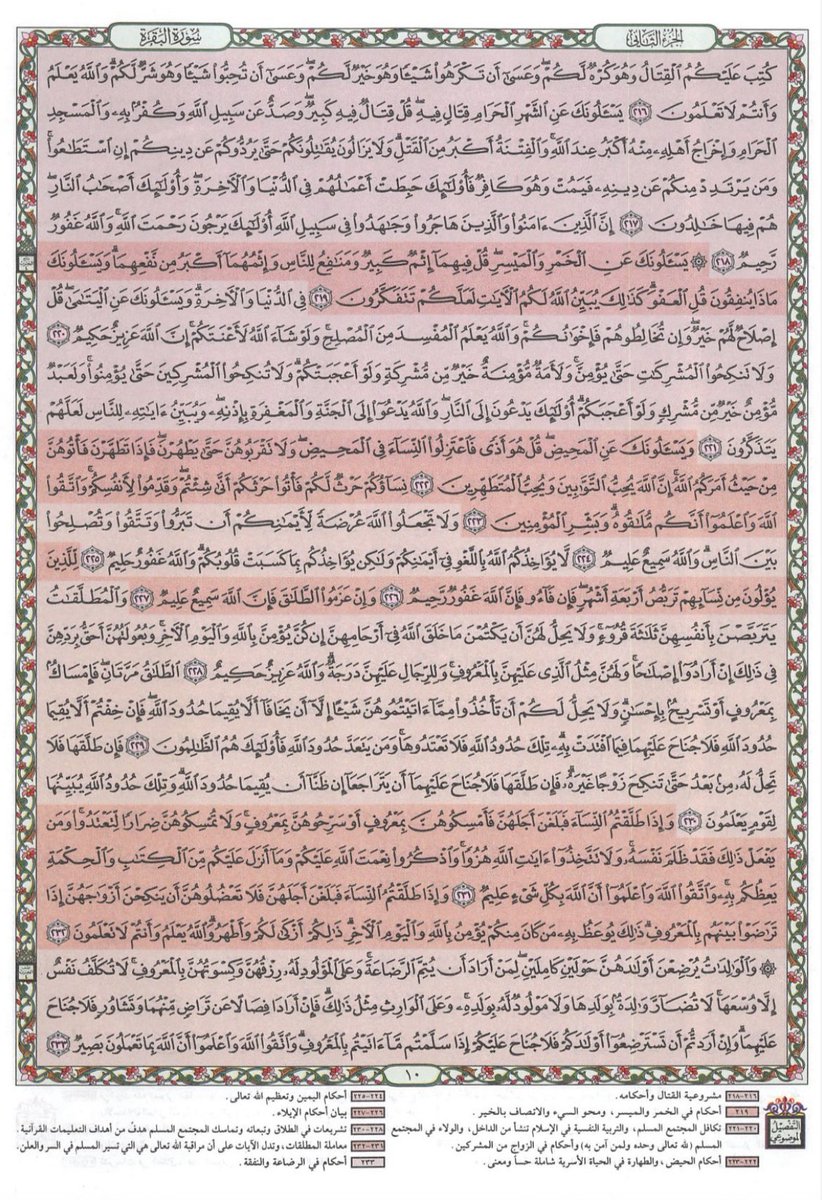 الجزء الثاني
سورة البقرة
كُتِبَ عَلَيْكُمُ الْقِتَالُ وَهُوَ كُرْهٌ لَّكُمْ ۖ وَعَسَىٰ أَن تَكْرَهُوا شَيْـًٔا وَهُوَ خَيْرٌ لَّكُمْ ۖ وَعَسَىٰ أَن تُحِبُّوا شَيْـًٔا وَهُوَ شَرٌّ لَّكُمْ ۗ وَاللَّهُ يَعْلَمُ
وَأَنتُمْ لَا تَعْلَمُونَ ٢١٦ يَسْـَٔلُونَكَ عَنِ الشَّهْرِ الْحَرَامِ قِتَالٍ فِيهِ ۖ قُلْ قِتَالٌ فِيهِ كَبِيرٌ ۖ وَصَدٌّ عَن سَبِيلِ اللَّهِ وَكُفْرٌۢ بِهِۦ وَالْمَسْجِدِ
الْحَرَامِ وَإِخْرَاجُ أَهْلِهِۦ مِنْهُ أَكْبَرُ عِندَ اللَّهِ ۚ وَالْفِتْنَةُ أَكْبَرُ مِنَ الْقَتْلِ ۗ وَلَا يَزَالُونَ يُقَـٰتِلُونَكُمْ حَتَّىٰ يَرُدُّوكُمْ عَن دِينِكُمْ إِنِ اسْتَطَـٰعُوا ۚ
وَمَن يَرْتَدِدْ مِنكُمْ عَن دِينِهِۦ فَيَمُتْ وَهُوَ كَافِرٌ فَأُولَـٰٓئِكَ حَبِطَتْ أَعْمَـٰلُهُمْ فِي الدُّنْيَا وَالْـَٔاخِرَةِ ۖ وَأُولَـٰٓئِكَ أَصْحَـٰبُ النَّارِ ۖ
هُمْ فِيهَا خَـٰلِدُونَ ٢١٧ إِنَّ الَّذِينَ ءَامَنُوا وَالَّذِينَ هَاجَرُوا وَجَـٰهَدُوا فِي سَبِيلِ اللَّهِ أُولَـٰٓئِكَ يَرْجُونَ رَحْمَتَ اللَّهِ ۚ وَاللَّهُ غَفُورٌ
رَّحِيمٌ ٢١٨ ۞ يَسْـَٔلُونَكَ عَنِ الْخَمْرِ وَالْمَيْسِرِ ۖ قُلْ فِيهِمَآ إِثْمٌ كَبِيرٌ وَمَنَـٰفِعُ لِلنَّاسِ وَإِثْمُهُمَآ أَكْبَرُ مِن نَّفْعِهِمَا ۗ وَيَسْـَٔلُونَكَ
مَاذَا يُنفِقُونَ قُلِ الْعَفْوَ ۗ كَذَٰلِكَ يُبَيِّنُ اللَّهُ لَكُمُ الْـَٔايَـٰتِ لَعَلَّكُمْ تَتَفَكَّرُونَ ٢١٩ فِي الدُّنْيَا وَالْـَٔاخِرَةِ ۗ وَيَسْـَٔلُونَكَ عَنِ الْيَتَـٰمَىٰ ۖ قُلْ
إِصْلَاحٌ لَّهُمْ خَيْرٌ ۖ وَإِن تُخَالِطُوهُمْ فَإِخْوَٰنُكُمْ ۚ وَاللَّهُ يَعْلَمُ الْمُفْسِدَ مِنَ الْمُصْلِحِ ۚ وَلَوْ شَآءَ اللَّهُ لَأَعْنَتَكُمْ ۚ إِنَّ اللَّهَ عَزِيزٌ حَكِيمٌ ٢٢٠
وَلَا تَنكِحُوا الْمُشْرِكَـٰتِ حَتَّىٰ يُؤْمِنَّ ۚ وَلَأَمَةٌ مُّؤْمِنَةٌ خَيْرٌ مِّن مُّشْرِكَةٍ وَلَوْ أَعْجَبَتْكُمْ ۗ وَلَا تُنكِحُوا الْمُشْرِكِينَ حَتَّىٰ يُؤْمِنُوا ۚ وَلَعَبْدٌ
مُّؤْمِنٌ خَيْرٌ مِّن مُّشْرِكٍ وَلَوْ أَعْجَبَكُمْ ۗ أُولَـٰٓئِكَ يَدْعُونَ إِلَى النَّارِ ۖ وَاللَّهُ يَدْعُوٓا إِلَى الْجَنَّةِ وَالْمَغْفِرَةِ بِإِذْنِهِۦ ۖ وَيُبَيِّنُ ءَايَـٰتِهِۦ لِلنَّاسِ لَعَلَّهُمْ
يَتَذَكَّرُونَ ٢٢١ وَيَسْـَٔلُونَكَ عَنِ الْمَحِيضِ ۖ قُلْ هُوَ أَذًى فَاعْتَزِلُوا النِّسَآءَ فِي الْمَحِيضِ ۖ وَلَا تَقْرَبُوهُنَّ حَتَّىٰ يَطْهُرْنَ ۖ فَإِذَا تَطَهَّرْنَ فَأْتُوهُنَّ
مِنْ حَيْثُ أَمَرَكُمُ اللَّهُ ۚ إِنَّ اللَّهَ يُحِبُّ التَّوَّٰبِينَ وَيُحِبُّ الْمُتَطَهِّرِينَ ٢٢٢ نِسَآؤُكُمْ حَرْثٌ لَّكُمْ فَأْتُوا حَرْثَكُمْ أَنَّىٰ شِئْتُمْ ۖ وَقَدِّمُوا لِأَنفُسِكُمْ ۚ وَاتَّقُوا
اللَّهَ وَاعْلَمُوٓا أَنَّكُم مُّلَـٰقُوهُ ۗ وَبَشِّرِ الْمُؤْمِنِينَ ٢٢٣ وَلَا تَجْعَلُوا اللَّهَ عُرْضَةً لِّأَيْمَـٰنِكُمْ أَن تَبَرُّوا وَتَتَّقُوا وَتُصْلِحُوا
بَيْنَ النَّاسِ ۗ وَاللَّهُ سَمِيعٌ عَلِيمٌ ٢٢٤ لَّا يُؤَاخِذُكُمُ اللَّهُ بِاللَّغْوِ فِيٓ أَيْمَـٰنِكُمْ وَلَـٰكِن يُؤَاخِذُكُم بِمَا كَسَبَتْ قُلُوبُكُمْ ۗ وَاللَّهُ غَفُورٌ حَلِيمٌ ٢٢٥ لِّلَّذِينَ
يُؤْلُونَ مِن نِّسَآئِهِمْ تَرَبُّصُ أَرْبَعَةِ أَشْهُرٍ ۖ فَإِن فَآءُو فَإِنَّ اللَّهَ غَفُورٌ رَّحِيمٌ ٢٢٦ وَإِنْ عَزَمُوا الطَّلَـٰقَ فَإِنَّ اللَّهَ سَمِيعٌ عَلِيمٌ ٢٢٧ وَالْمُطَلَّقَـٰتُ
يَتَرَبَّصْنَ بِأَنفُسِهِنَّ ثَلَـٰثَةَ قُرُوٓءٍ ۚ وَلَا يَحِلُّ لَهُنَّ أَن يَكْتُمْنَ مَا خَلَقَ اللَّهُ فِيٓ أَرْحَامِهِنَّ إِن كُنَّ يُؤْمِنَّ بِاللَّهِ وَالْيَوْمِ الْـَٔاخِرِ ۚ وَبُعُولَتُهُنَّ أَحَقُّ بِرَدِّهِنَّ
فِي ذَٰلِكَ إِنْ أَرَادُوٓا إِصْلَـٰحًا ۚ وَلَهُنَّ مِثْلُ الَّذِي عَلَيْهِنَّ بِالْمَعْرُوفِ ۚ وَلِلرِّجَالِ عَلَيْهِنَّ دَرَجَةٌ ۗ وَاللَّهُ عَزِيزٌ حَكِيمٌ ٢٢٨ الطَّلَـٰقُ مَرَّتَانِ ۖ فَإِمْسَاكٌۢ
بِمَعْرُوفٍ أَوْ تَسْرِيحٌۢ بِإِحْسَـٰنٍ ۗ وَلَا يَحِلُّ لَكُمْ أَن تَأْخُذُوا مِمَّآ ءَاتَيْتُمُوهُنَّ شَيْـًٔا إِلَّآ أَن يَخَافَآ أَلَّا يُقِيمَا حُدُودَ اللَّهِ ۖ فَإِنْ خِفْتُمْ أَلَّا يُقِيمَا
حُدُودَ اللَّهِ فَلَا جُنَاحَ عَلَيْهِمَا فِيمَا افْتَدَتْ بِهِۦ ۗ تِلْكَ حُدُودُ اللَّهِ فَلَا تَعْتَدُوهَا ۚ وَمَن يَتَعَدَّ حُدُودَ اللَّهِ فَأُولَـٰٓئِكَ هُمُ الظَّـٰلِمُونَ ٢٢٩ فَإِن طَلَّقَهَا فَلَا
تَحِلُّ لَهُۥ مِنۢ بَعْدُ حَتَّىٰ تَنكِحَ زَوْجًا غَيْرَهُۥ ۗ فَإِن طَلَّقَهَا فَلَا جُنَاحَ عَلَيْهِمَآ أَن يَتَرَاجَعَآ إِن ظَنَّآ أَن يُقِيمَا حُدُودَ اللَّهِ ۗ وَتِلْكَ حُدُودُ اللَّهِ يُبَيِّنُهَا
لِقَوْمٍ يَعْلَمُونَ ٢٣٠ وَإِذَا طَلَّقْتُمُ النِّسَآءَ فَبَلَغْنَ أَجَلَهُنَّ فَأَمْسِكُوهُنَّ بِمَعْرُوفٍ أَوْ سَرِّحُوهُنَّ بِمَعْرُوفٍ ۚ وَلَا تُمْسِكُوهُنَّ ضِرَارًا لِّتَعْتَدُوا ۚ وَمَن
يَفْعَلْ ذَٰلِكَ فَقَدْ ظَلَمَ نَفْسَهُۥ ۚ وَلَا تَتَّخِذُوٓا ءَايَـٰتِ اللَّهِ هُزُوًا ۚ وَاذْكُرُوا نِعْمَتَ اللَّهِ عَلَيْكُمْ وَمَآ أَنزَلَ عَلَيْكُم مِّنَ الْكِتَـٰبِ وَالْحِكْمَةِ
يَعِظُكُم بِهِۦ ۚ وَاتَّقُوا اللَّهَ وَاعْلَمُوٓا أَنَّ اللَّهَ بِكُلِّ شَيْءٍ عَلِيمٌ ٢٣١ وَإِذَا طَلَّقْتُمُ النِّسَآءَ فَبَلَغْنَ أَجَلَهُنَّ فَلَا تَعْضُلُوهُنَّ أَن يَنكِحْنَ أَزْوَٰجَهُنَّ إِذَا
تَرَٰضَوْا بَيْنَهُم بِالْمَعْرُوفِ ۗ ذَٰلِكَ يُوعَظُ بِهِۦ مَن كَانَ مِنكُمْ يُؤْمِنُ بِاللَّهِ وَالْيَوْمِ الْـَٔاخِرِ ۗ ذَٰلِكُمْ أَزْكَىٰ لَكُمْ وَأَطْهَرُ ۗ وَاللَّهُ يَعْلَمُ وَأَنتُمْ لَا تَعْلَمُونَ ٢٣٢
۞ وَالْوَٰلِدَٰتُ يُرْضِعْنَ أَوْلَـٰدَهُنَّ حَوْلَيْنِ كَامِلَيْنِ ۖ لِمَنْ أَرَادَ أَن يُتِمَّ الرَّضَاعَةَ ۚ وَعَلَى الْمَوْلُودِ لَهُۥ رِزْقُهُنَّ وَكِسْوَتُهُنَّ بِالْمَعْرُوفِ ۚ لَا تُكَلَّفُ نَفْسٌ
إِلَّا وُسْعَهَا ۚ لَا تُضَآرَّ وَٰلِدَةٌۢ بِوَلَدِهَا وَلَا مَوْلُودٌ لَّهُۥ بِوَلَدِهِۦ ۚ وَعَلَى الْوَارِثِ مِثْلُ ذَٰلِكَ ۗ فَإِنْ أَرَادَا فِصَالًا عَن تَرَاضٍ مِّنْهُمَا وَتَشَاوُرٍ فَلَا جُنَاحَ
عَلَيْهِمَا ۗ وَإِنْ أَرَدتُّمْ أَن تَسْتَرْضِعُوٓا أَوْلَـٰدَكُمْ فَلَا جُنَاحَ عَلَيْكُمْ إِذَا سَلَّمْتُم مَّآ ءَاتَيْتُم بِالْمَعْرُوفِ ۗ وَاتَّقُوا اللَّهَ وَاعْلَمُوٓا أَنَّ اللَّهَ بِمَا تَعْمَلُونَ بَصِيرٌ ٢٣٣
١٠
التفصيل الموضوعي
٢١٦-٢١٨ مشروعية القتال وأحكامه.
٢١٩ أحكام في الخمر والميسر، ومحو السيء والاتصاف بالخير.
٢٢٠-٢٢١ تكافل المجتمع المسلم، والتربية النفسية في الإسلام تنشأ من الداخل، والولاء في المجتمع
المسلم (لله تعالى وحده ولمن آمن به) وأحكام في الزواج من المشركين.
٢٢٢-٢٢٣ أحكام الحيض، والطهارة في الحياة الأسرية شاملة حساً ومعنى.
٢٢٤-٢٢٥ أحكام اليمين وتعظيم الله تعالى.
٢٢٦-٢٢٧ بيان أحكام الإيلاء.
٢٢٨-٢٣٠ تشريعات في الطلاق وتبعاته وتماسك المجتمع المسلم هدف من أهداف التعليمات القرآنية.
٢٣١-٢٣٢ معاملة المطلقات، وتدل الآيات على أن مراقبة الله تعالى هي التي تسير المسلم في السر والعلن.
٢٣٣ أحكام في الرضاعة والنفقة.